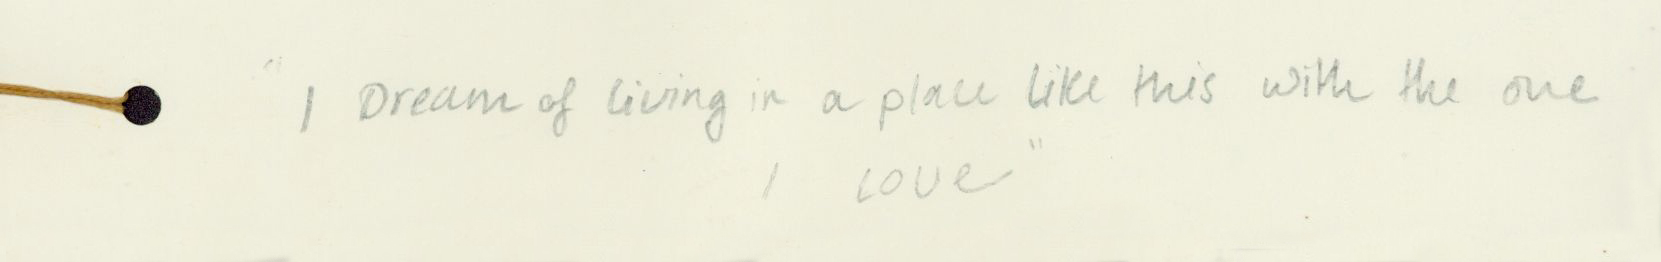 "I Dream of living in a place like this with the one
I love"